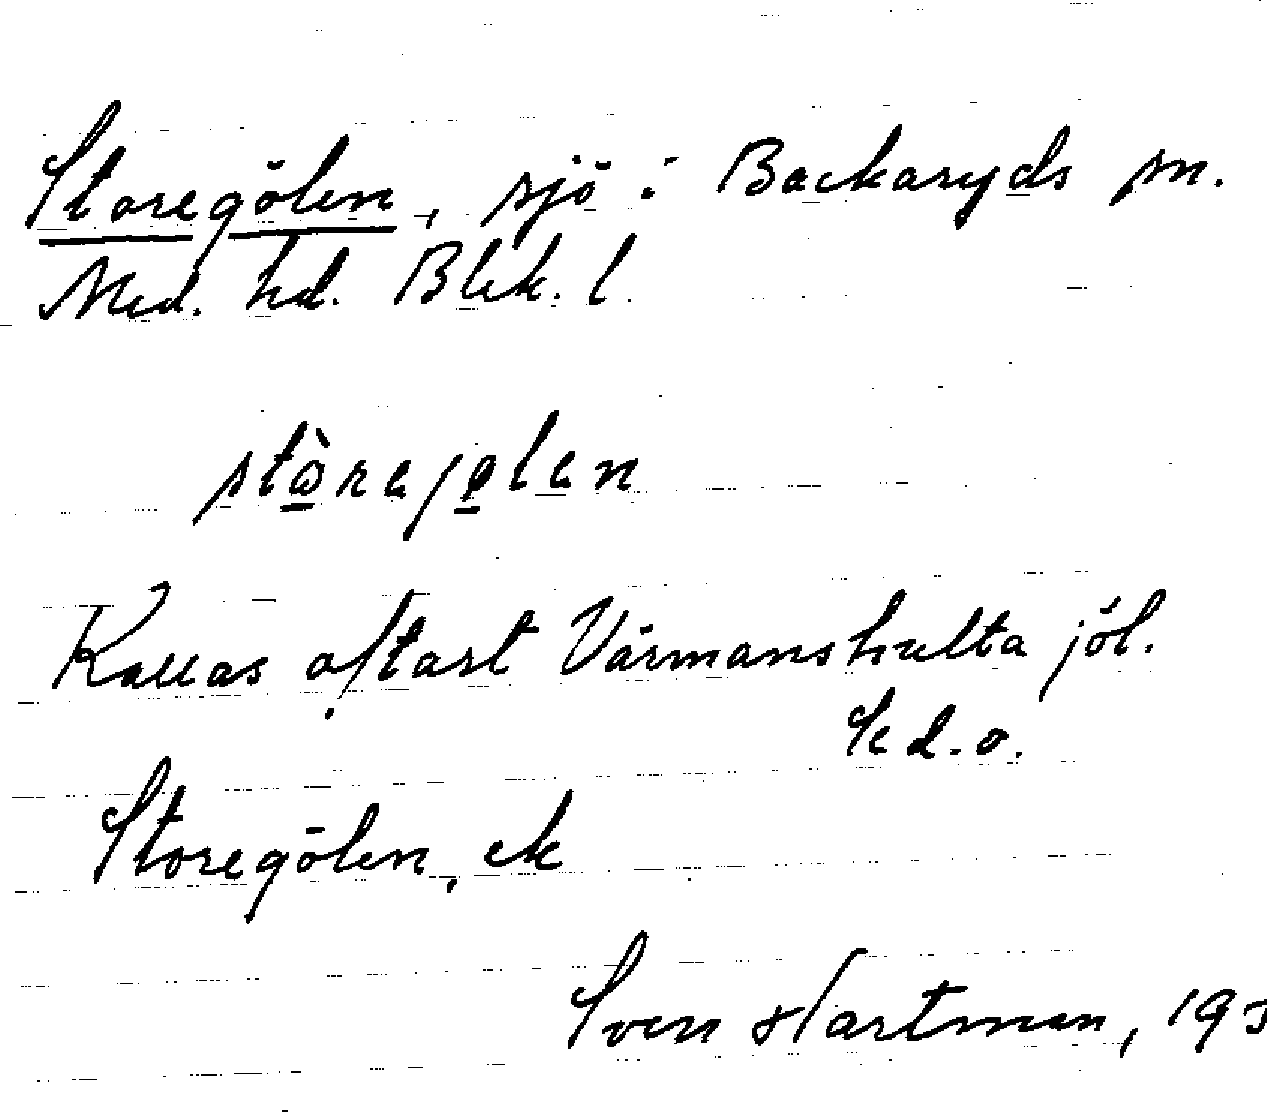 Storegölen, sjö i Backaryds sn.
Med. hd. Blek. l.
Kallas oftast Värmanshulta jöl.
Se d.o.
Storegölen, ek
Sven Hartman, 193